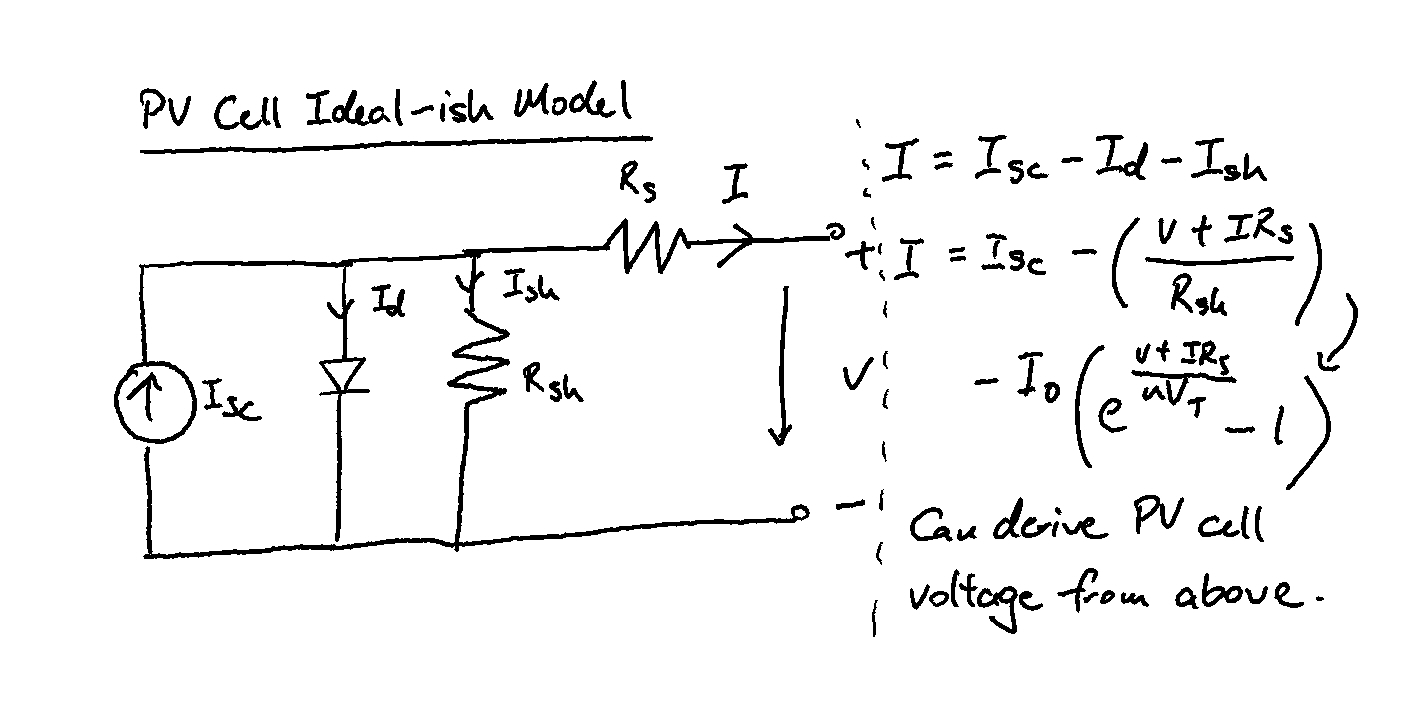 PV Cell Ideal-ish Model
Rs
I
+
Id
Ish
Isc
Rsh
V
-
I = Isc - Id - Ish
I = Isc - (V + IRs / Rsh)
- I0 (e^(V + IRs / nVT) - 1)
Can derive PV cell
voltage from above.